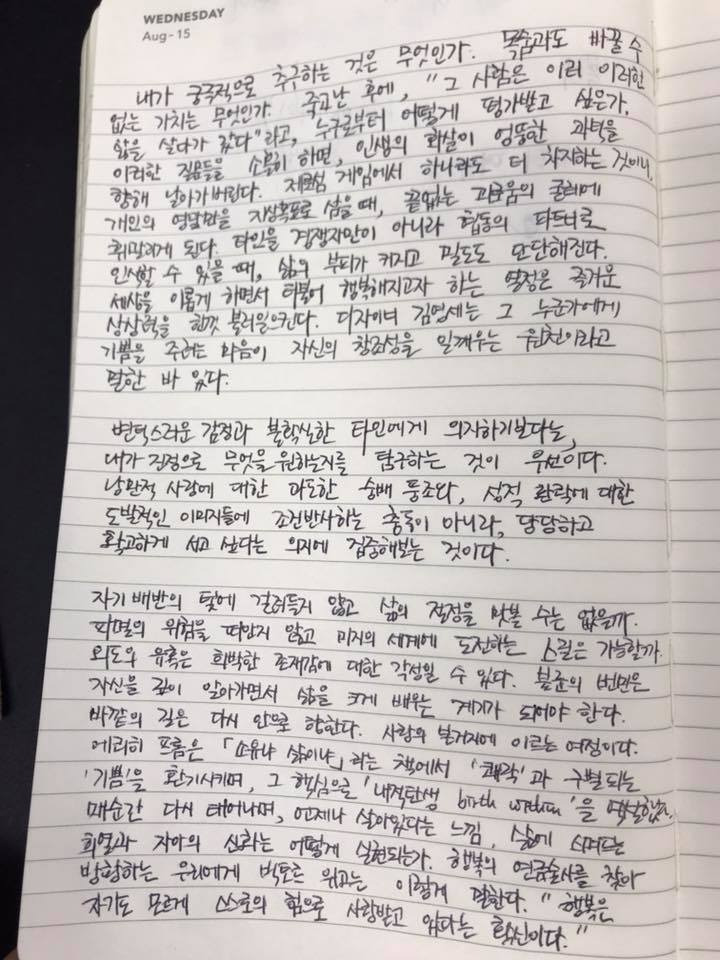 WEDNESDAY
Aug-15
내가 궁극적으로 추구하는 것은 무엇인가. 목숨과도 바꿀 수
없는 가치는 무엇인가. 죽고난 후에, "그 사람은 이러 이러한
삶을 살다가 갔다"라고, 누구로부터 어떻게 평가받고 싶은가.
이러한 질문들을 소홀히 하면, 인생의 화살이 엉뚱한 과녁을
향해 날아가버린다. 제로섬 게임에서 하나라도 더 차지하는 것이나,
개인의 영달만을 지상목표로 삼을 때, 끝없는 괴로움의 굴레에
휘말리게 된다. 타인을 경쟁자만이 아니라 협동의 파트너로
인식할 수 있을 때, 삶의 부피가 커지고 밀도도 단단해진다.
세상을 이롭게 하면서 더불어 행복해지고자 하는 열정은 즐거운
상상력을 한껏 불러일으킨다. 디자이너 김영세는 그 누군가에게
기쁨을 주려는 마음이 자신의 창조성을 일깨우는 원천이라고
말한 바 있다.
변덕스러운 감정과 불확실한 타인에게 의지하기보다는,
내가 진정으로 무엇을 원하는지를 탐구하는 것이 우선이다.
낭만적 사랑에 대한 과도한 숭배 풍조와, 성적 환락에 대한
도발적인 이미지들에 조건반사하는 충동이 아니라, 당당하고
확고하게 서고 싶다는 의지에 집중해보는 것이다.
자기 배반의 덫에 걸려들지 않고 삶의 절정을 맛볼 수는 없을까.
파멸의 위험을 떠안지 않고 미지의 세계에 도전하는 스릴은 가능할까.
외도와 유혹은 희박한 존재감에 대한 각성일 수 있다. 불륜의 번민은
자신을 깊이 알아가면서 삶을 크게 배우는 계기가 되어야 한다.
바깥의 길은 다시 안으로 향한다. 사랑의 본거지에 이르는 여정이다.
에리히 프롬은 「소유냐 삶이냐」라는 책에서 '쾌락'과 구별되는
'기쁨'을 환기시키며, 그 핵심으로 '내적탄생 birth within'을 역설했다.
매순간 다시 태어나며, 언제나 살아있다는 느낌, 삶에 스며드는
희열과 자아의 신화는 어떻게 실현되는가. 행복의 연금술사를 찾아
방황하는 우리에게 빅토르 위고는 이렇게 말한다. "행복은
자기도 모르게 스스로의 힘으로 사랑받고 있다는 확신이다."